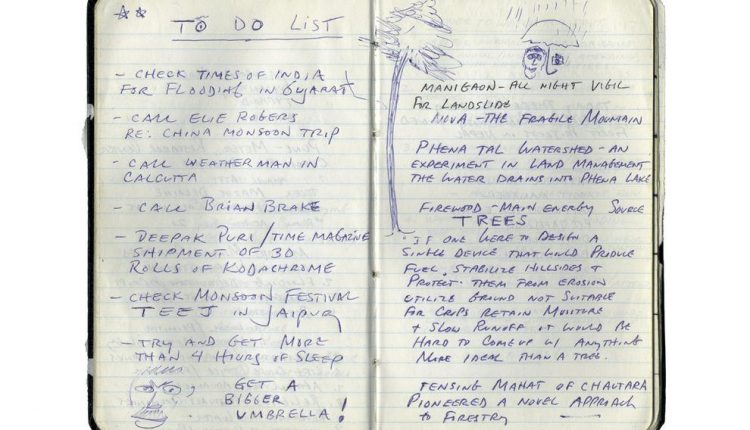 TO DO LIST
- CHECK TIMES OF INDIA
FOR FLOODING IN GUJARAT
- CALL ELIE ROGERS
RE: CHINA MONSOON TRIP
- CALL WEATHERMAN IN
CALCUTTA
- CALL BRIAN BRAKE
- DEEPAK PURI/TIME MAGAZINE
SHIPMENT OF 30
ROLLS OF KODACHROME
- CHECK MONSOON FESTIVAL
TEEJ IN JAIPUR
- TRY AND GET MORE
THAN 4 HOURS OF SLEEP
GET A
BIGGER
UMBRELLA!
MANIGAON - ALL NIGHT VIGIL
FOR LANDSLIDE
NOVA - THE FRAGILE MOUNTAIN
PHENA TAL WATERSHED - AN
EXPERIMENT IN LAND MANAGEMENT
THE WATER DRAINS INTO PHENA LAKE
FIREWOOD - MAIN ENERGY SOURCE
TREES
"IF ONE WERE TO DESIGN A
SINGLE DEVICE THAT WOULD PRODUCE
FUEL, STABILIZE HILLSIDES +
PROTECT THEM FROM EROSION
UTILIZE GROUND NOT SUITABLE
FOR CROPS RETAIN MOISTURE
+ SLOW RUNOFF IT WOULD BE
HARD TO COME UP W/ ANYTHING
MORE IDEAL THAN A TREE.
TENSING MAHAT OF CHAUTARA
PIONEERED A NOVEL APPROACH
TO FIRESTRY